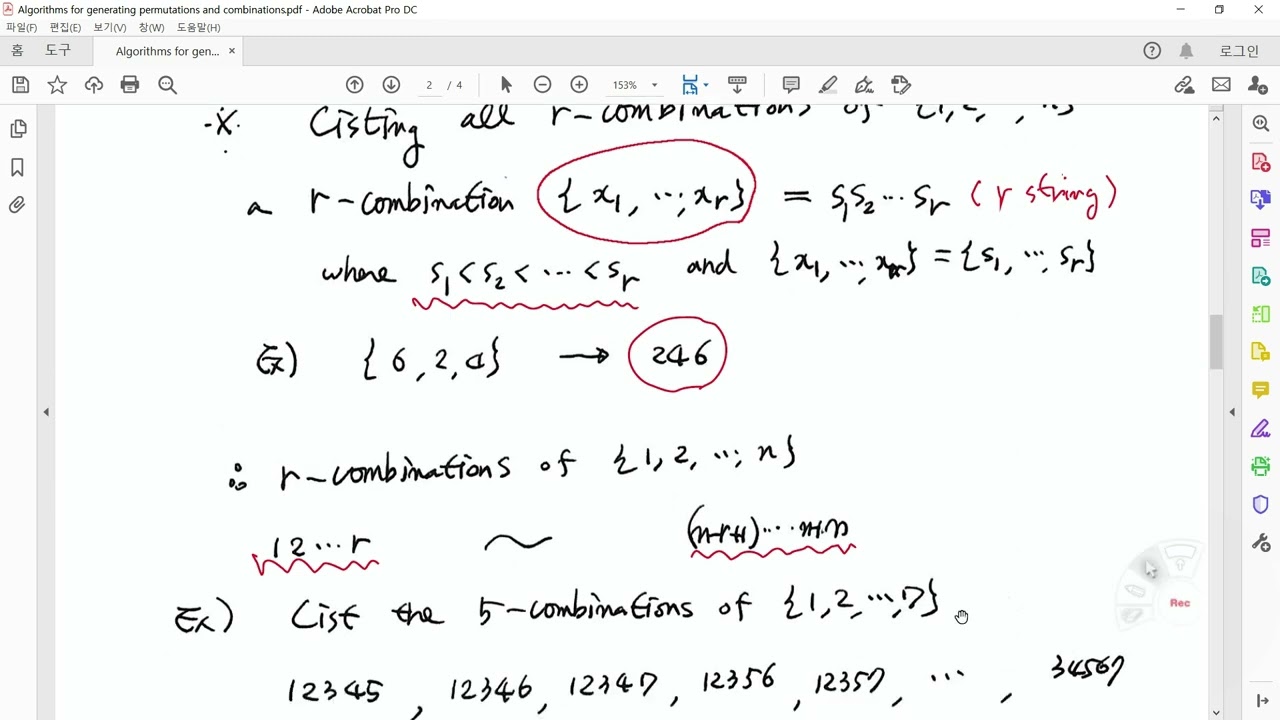 Algorithms for generating permutations and combinations.pdf - Adobe Acrobat Pro DC
파일(F) 편집(E) 보기(V) 창(W) 도움말(H)
홈 도구 Algorithms for gen... × 로그인
2 / 4 153%
-X- Listing all r-combinations of {1,2, , n}
a r-combination {x1, ..., xr} = s1s2...sr (r string)
where s1 < s2 < ... < sr and {x1, ..., xr} = {s1, ..., sr}
Ex) {6, 2, 4} → 246
∴ r-combinations of {1, 2, ..., n}
12...r ~ (n-r+1)... n-1 n
Ex) List the 5-combinations of {1,2, ...,7}
Rec
12345, 12346, 12347, 12356, 12357, ..., 34567